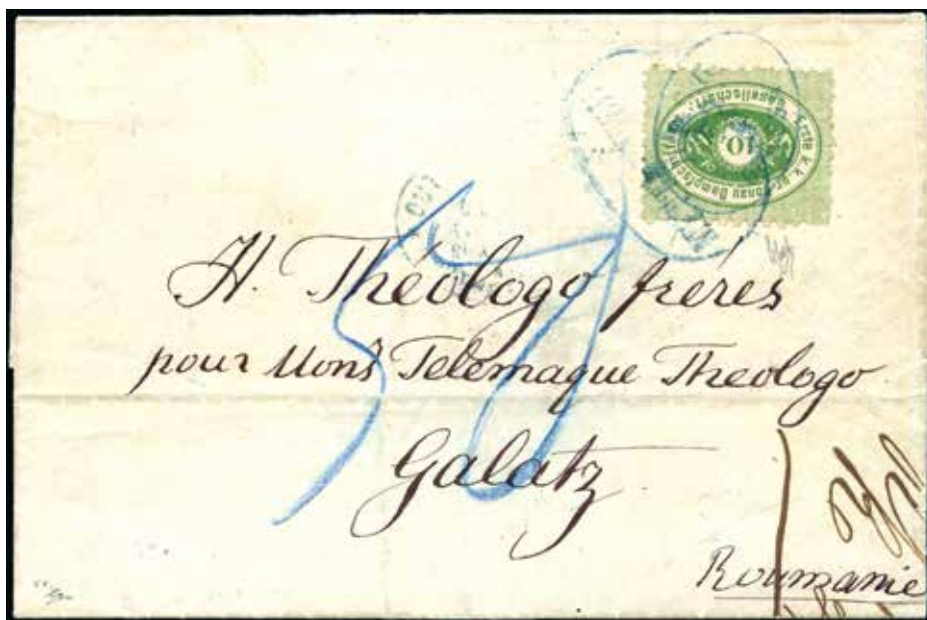 Erste k.k. pr. Donau Dampfschiffahrt Gesellschaft
10
50
H. Théologo frères
pour Mons Telemaque Theologo
Galatz
Roumanie